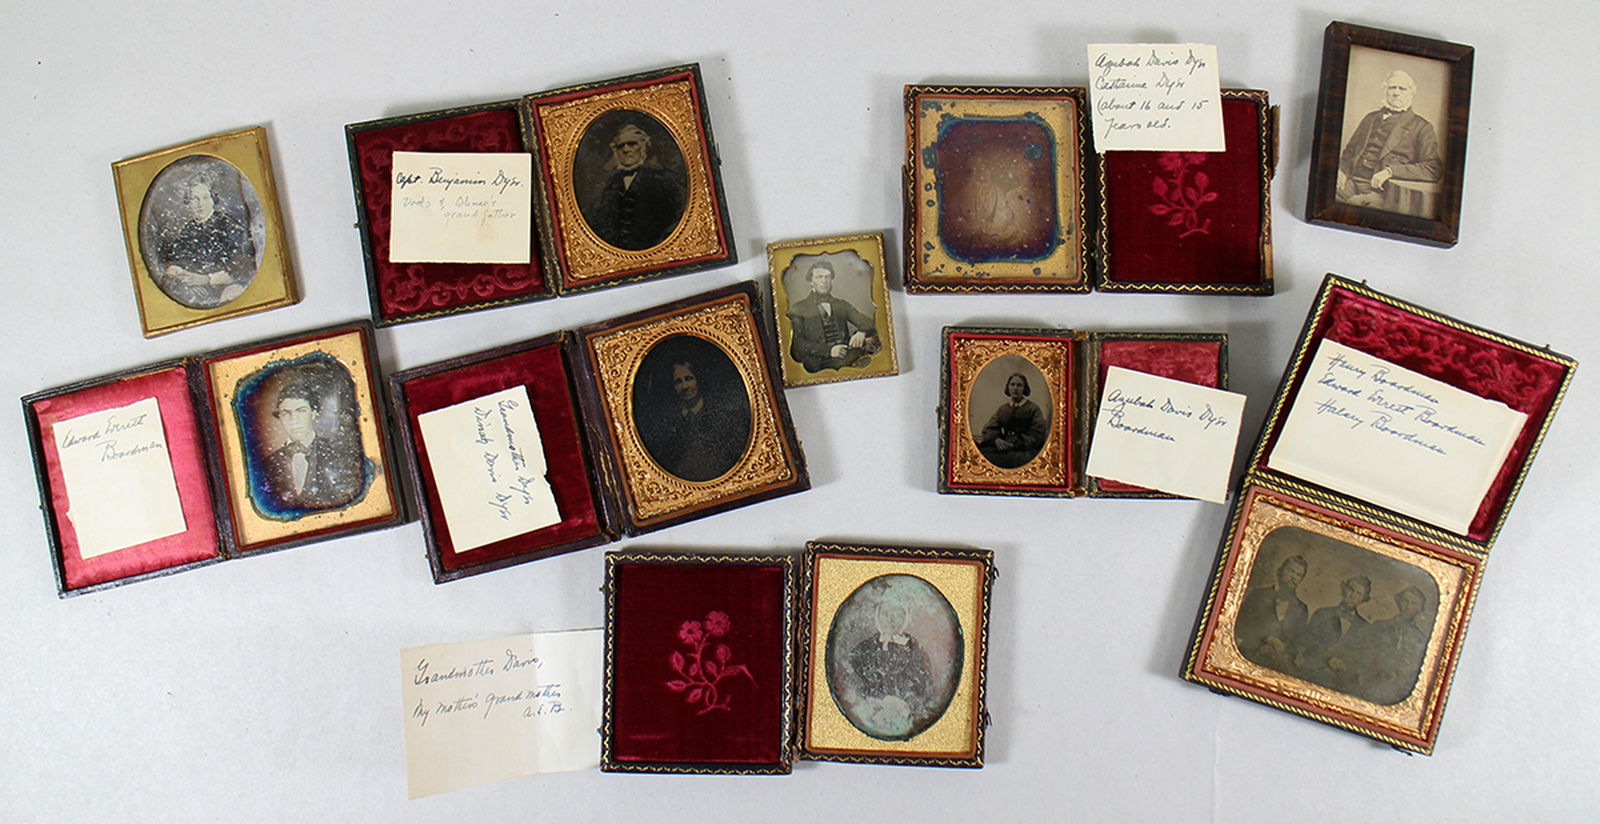 Capt. Benjamin Dyer.
Dad's & Abner's
grand father
Azubah Davis Dyer
Catharine Dyer
(about 16 and 15
years old.
Edward Everett
Boardman
Grandmother Dyer
Dinah Davis Dyer
Azubah Davis Dyer
Boardman
Henry Boardman
Edward Everett Boardman
Halsey Boardman
Grandmother Davis,
My mother's grand mother
A. E. B.